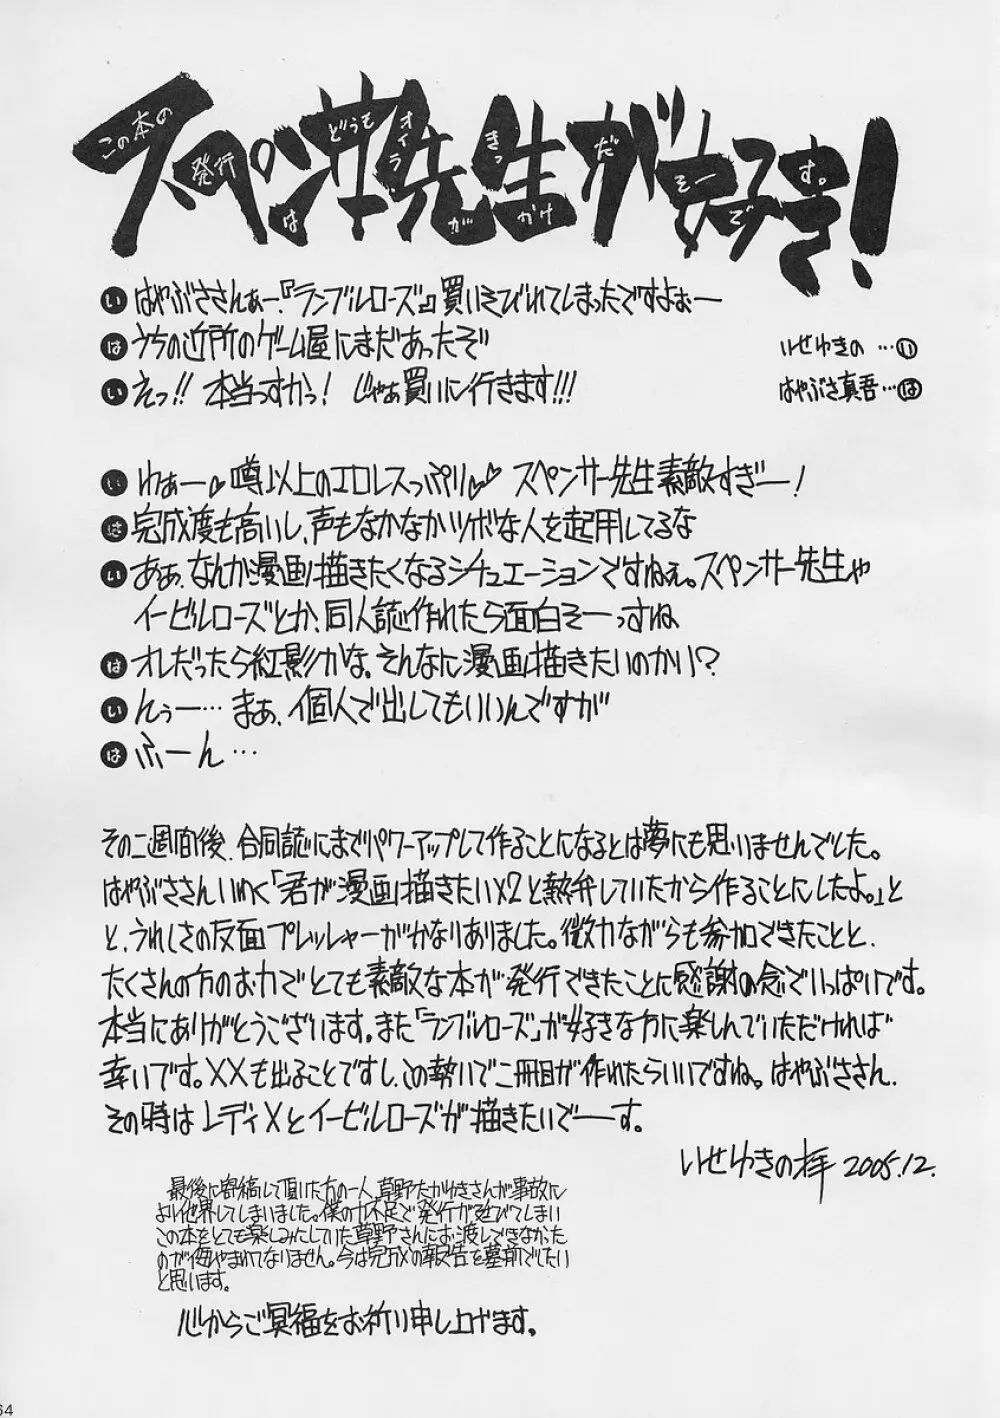 スペンサー先生が好き!
この本の発行はどうもオイラがきっかけだそーです。
い はやぶささんぁー、『ランブルローズ』買いそびれてしまったですよぉー
は うちの近所のゲーム屋にまだあったぞ
い えっ!! 本当っすかっ! じゃぁ買いに行きます!!!
いせゆきの …い
はやぶさ真吾…は
い わぁー♥噂以上のエロレスっぷり♥♥ スペンサー先生素敵すぎー!
は 完成度も高いし、声もなかなかツボな人を起用してるな
い あぁ、なんか漫画描きたくなるシチュエーションですねぇ。スペンサー先生や
イービルローズとか、同人誌作れたら面白そーっすね
は オレだったら紅影かな。そんなに漫画描きたいのかい?
い んぅー… まぁ、個人で出してもいいんですが
は ふーん…
その二週間後、合同誌にまでパワーアップして作ることになるとは夢にも思いませんでした。
はやぶささんいわく「君が漫画描きたい×2と熱弁していたから作ることにしたよ。」と
と、うれしさの反面プレッシャーがかなりありました。微力ながらも参加できたことと、
たくさんの方のお力でとても素敵な本が発行できたことに感謝の念でいっぱいです。
本当にありがとうございます。また「ランブルローズ」が好きな方に楽しんでいただければ
幸いです。XXも出ることですし、この勢いで二冊目が作れたらいいですね。はやぶささん、
その時はレディXとイービルローズが描きたいでーす。
いせゆきの拝 2005.12.
最後に寄稿して頂いた方の一人、草野たかゆきさんが事故に
より他界してしまいました。僕の力不足で発行が延びてしまい
この本をとても楽しみにしていた草野さんにお渡しできなかった
のが悔やまれてなりません。今は完成の報告を墓前でしたい
と思います。
心からご冥福をお祈り申し上げます。
64